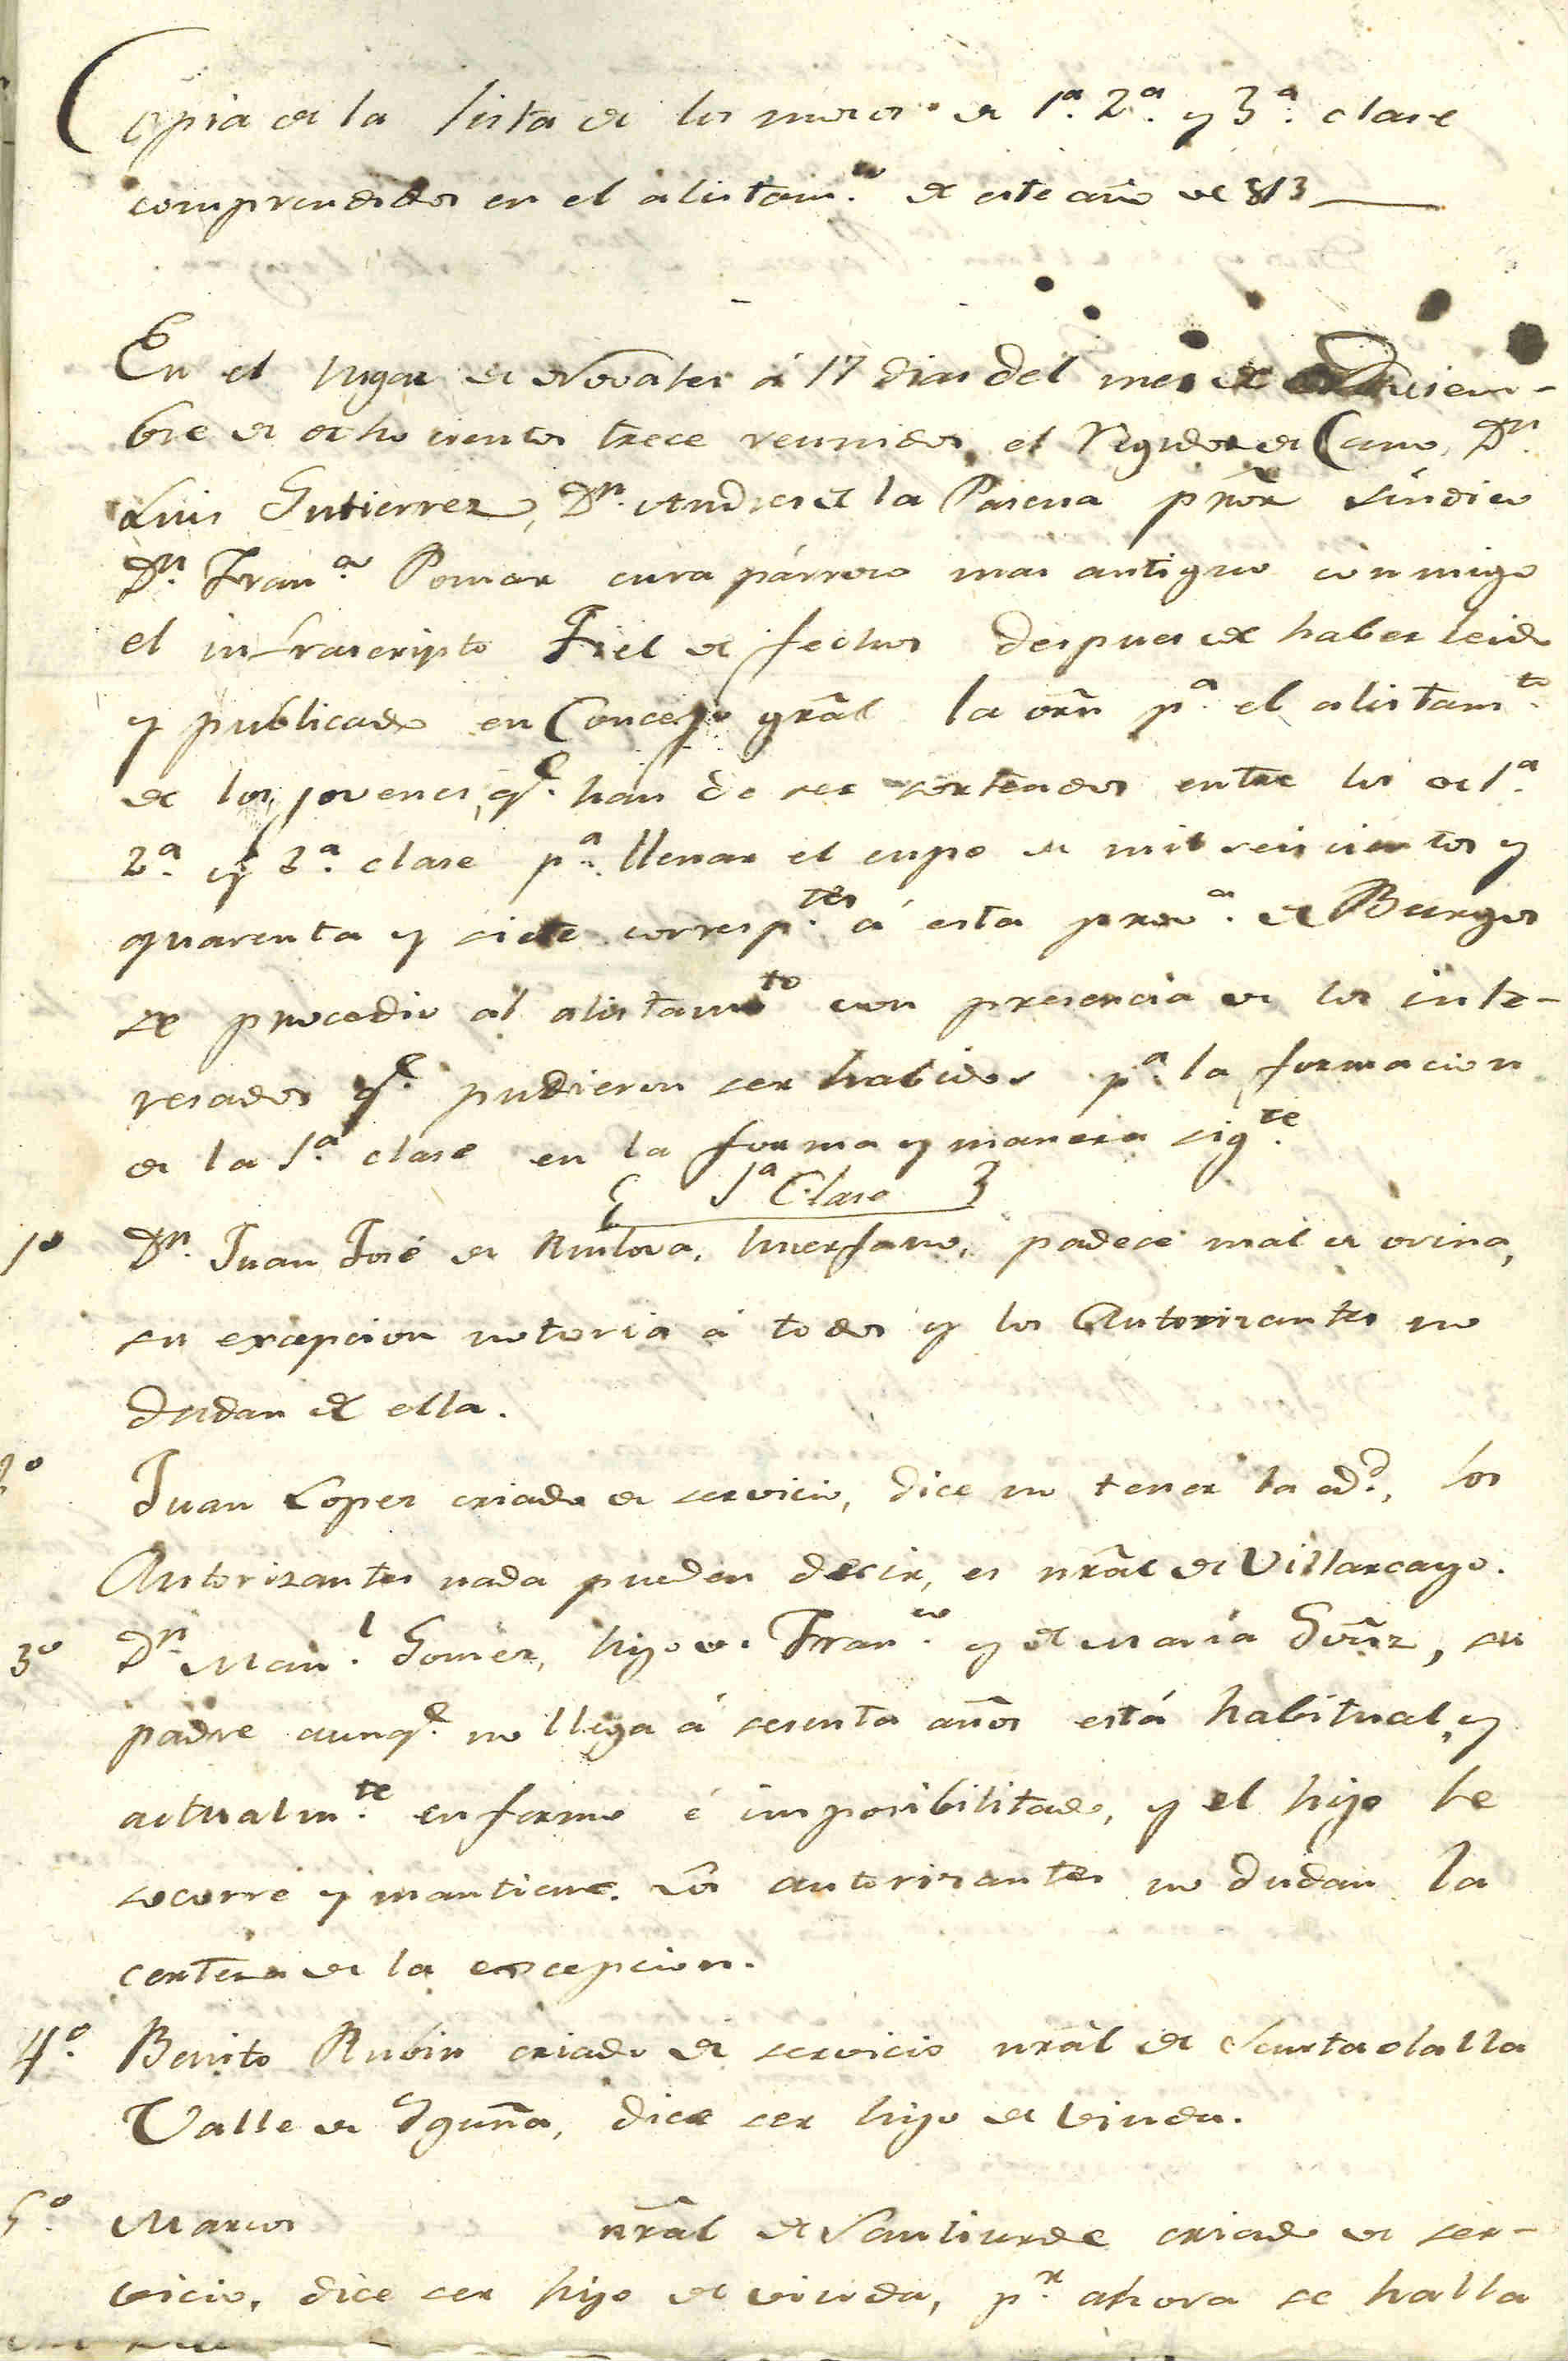 Copia de la lista de los mozos de 1ª. 2ª. y 3ª. clase
comprendidos en el alistamto. de este año de 813
En el lugar de Novales á 17 dias del mes de Diciem-
bre de ocho cientos trece reunidos el Regidor de Cano, Dn.
Luis Gutierrez, Dn. Andres de la Pascua prõr síndico
Dn. Franco. Pomar cura párroco mas antiguo conmigo
el infrascripto Fiel de fechos despues de haber leido
y publicado en Concejo grãl la orñ pª. el alistamto.
de los jovenes, qe. han de ser sorteados entre los de 1ª.
2ª. y 3ª. clase pª. llenar el cupo de mil seiscientos y
quarenta y siete corresptes. á esta prova. de Burgos
se procedio al alistamto con presencia de los inte-
resados qe. pudieron ser habidos pª. la formacion
de la 1ª. clase en la forma y manera sigte.
1ª Clase
1º Dn. Juan José de huerfano, padece mal de orina,
su excepcion notoria á todos y los Autorizantes no
dudan de ella.
2º Juan Lopez criado de servicio, dice no tener la edd., los
Autorizantes nada pueden decir, es nrãl de Villarcayo.
3º Dn Manl. Gomez, hijo de Franco. y de María Gonz̃, su
padre aunqe. no llega á sesenta años está habitual, y
actualmte. enfermo é imposibilitado, y el hijo le
socorre y mantiene. Los autorizantes no dudan la
certeza de la excepcion.
4º. Benito Rubin criado de servicio nrãl de Santaolalla
Valle de Iguña, dice ser hijo de viuda.
5º. Marcos nrãl de Santiurde criado de ser-
vicio, dice ser hijo de viuda, pr. ahora se halla